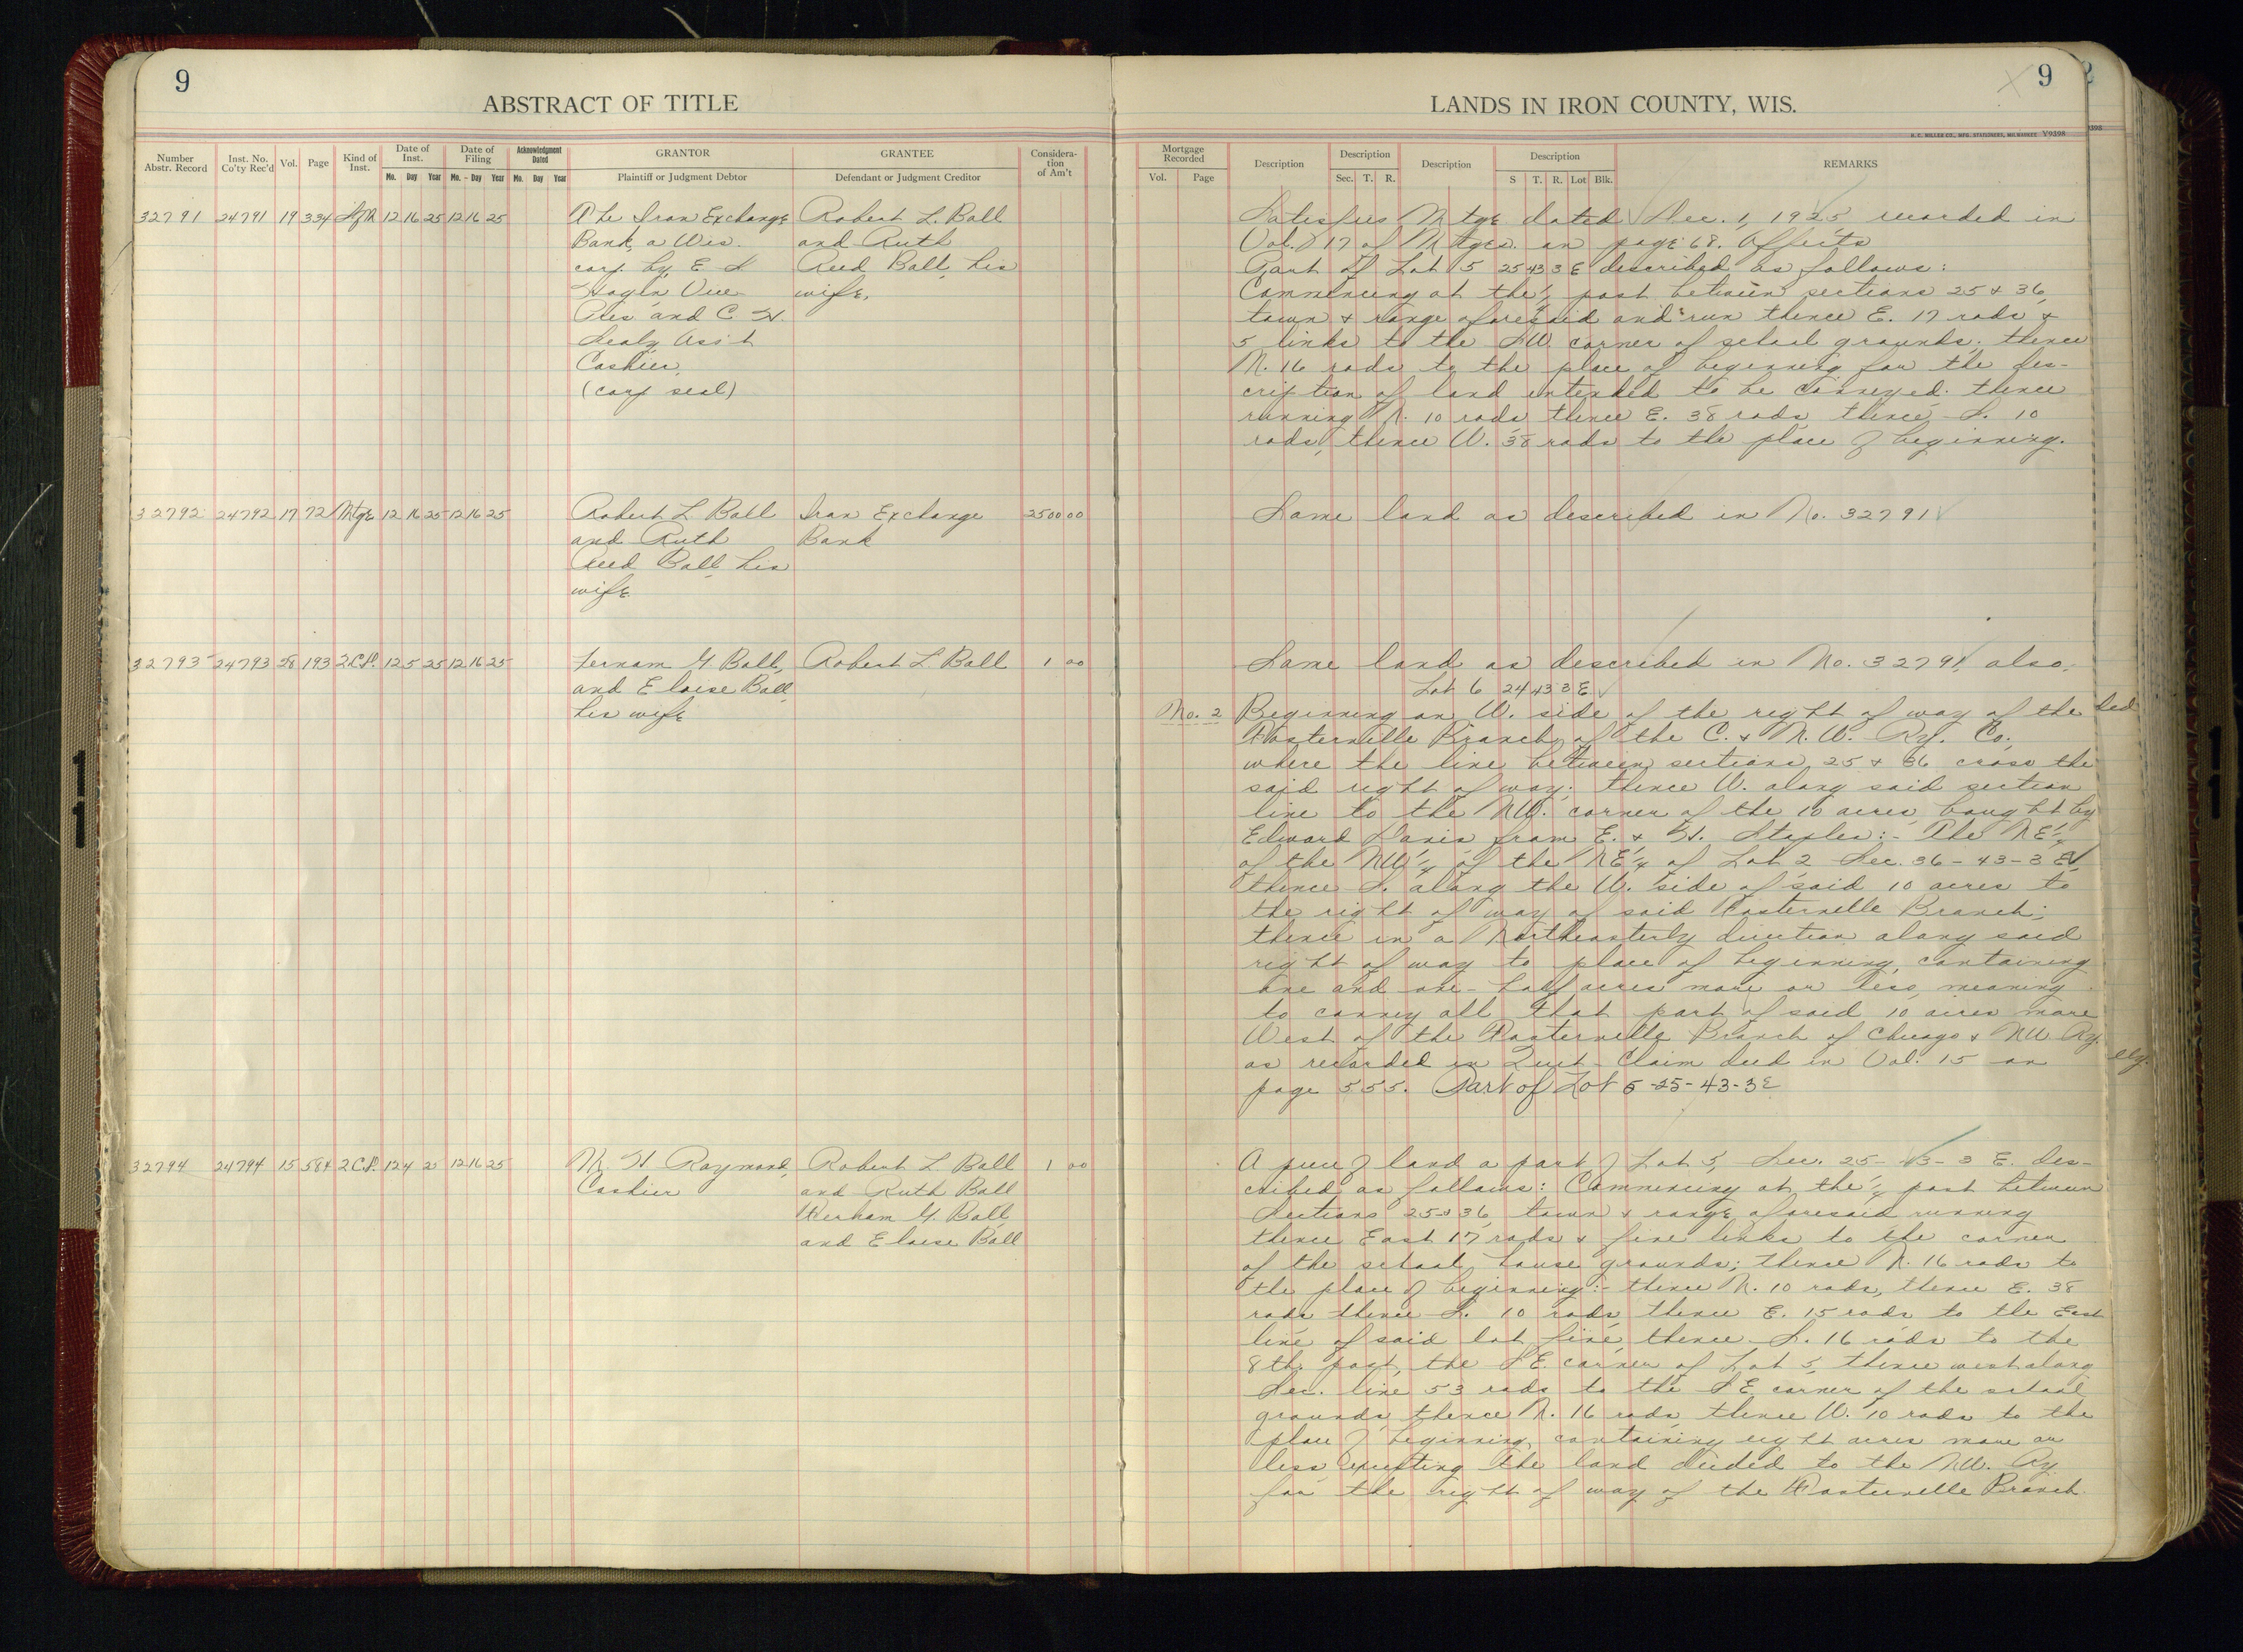 9
ABSTRACT OF TITLE
Number Abstr. Record
Inst. No. Co'ty Rec'd
Vol.
Page
Kind of Inst.
Date of Inst.
Mo. Day Year
Date of Filing
Mo. - Day Year
Acknowledgment Dated
Mo. Day Year
GRANTOR
Plaintiff or Judgment Debtor
GRANTEE
Defendant or Judgment Creditor
Considera-
tion
of Am't
32791 24791 19 334 12 16 25 12 16 25 The Iron Exchange Robert L. Ball
Bank, a Wis. and Ruth
corp. by E S Reed Ball, his
Vice wife.
Pres. and C. H.
Sealy Ass't
Cashier.
(corp seal)
32792 24792 17 72 Mtge 12 16 25 12 16 25 Robert L Ball Iron Exchange 2500 00
and Ruth Bank
Reed Ball his
wife.
32793 24793 28 193 2.C.D. 12 5 25 12 16 25 Fernam G Ball, Robert L Ball 1 00
and Eloise Ball
his wife
32794 24794 15 584 2 C.D. 12 4 2 12 16 25 M. H Raymond, Robert L Ball 1 00
Cashier and Ruth Ball
G. Ball
and Eloise Ball
9
LANDS IN IRON COUNTY, WIS.
H. C. MILLER CO., MFG. STATIONERS, MILWAUKEE Y9398
Mortgage Recorded
Vol. Page
Description
Description
Sec. T. R.
Description
Description
S T. R. Lot Blk.
REMARKS
Satisfies Mtge dated Dec. 1, 1925 recorded in
Vol. 17 of Mtges. on page 68. Affects
Part of Lot 5 25 43 3 E described as follows:
Commencing at the 1/4 post between sections 25 & 36,
town & range aforesaid and run thence E. 17 rods &
5 links to the SW. corner of school grounds; thence
N. 16 rods to the place of beginning for the des-
cription of land intended to be conveyed: thence
running N. 10 rods, thence E. 38 rods, thence S. 10
rods, thence W. 38 rods to the place of beginning.
Same land as described in No. 32791
Same land as described in No. 32791, also,
Lot 6 24 43 3 E
No. 2 Beginning on W. side of the right of way of the
Fosterville Branch of the C. & N. W. Ry. Co.,
where the line between sections 25 & 36 cross the
said right of way; thence W. along said section
line to the NW. corner of the 10 acres bought by
Edward Davis from E. & H. Staples:- The NE1/4
of the NW1/4 of the NE1/4 of Lot 2 Sec. 36-43-3 E,
thence S. along the W. side of said 10 acres to
the right of way of said Fosterville Branch;
thence in a Northeasterly direction along said
right of way to place of beginning, containing
one and one-half acres more or less, meaning
to convey all that part of said 10 acres more
West of the Fosterville Branch of Chicago & NW Ry.
as recorded in Quit Claim deed in Vol. 15 on
page 555. Part of Lot 5-25-43-3E
A piece of land a part of Lot 5, Sec. 25-43-3 E. des-
cribed as follows: Commencing at the 1/4 post between
Sections 25 & 36, town & range aforesaid running
thence East 17 rods & five links to the corner
of the school house grounds; thence N. 16 rods to
the place of beginning:- thence N. 10 rods, thence E. 38
rods thence S. 10 rods, thence E. 15 rods to the East
line of said lot five, thence S. 16 rods to the
8th post, the SE. corner of Lot 5, thence west along
Sec. line 53 rods to the SE corner of the school
grounds, thence N. 16 rods, thence W. 10 rods to the
place of beginning, containing eight acres more or
less, excepting the land deeded to the N.W. Ry
for the right of way of the Fosterville Branch.